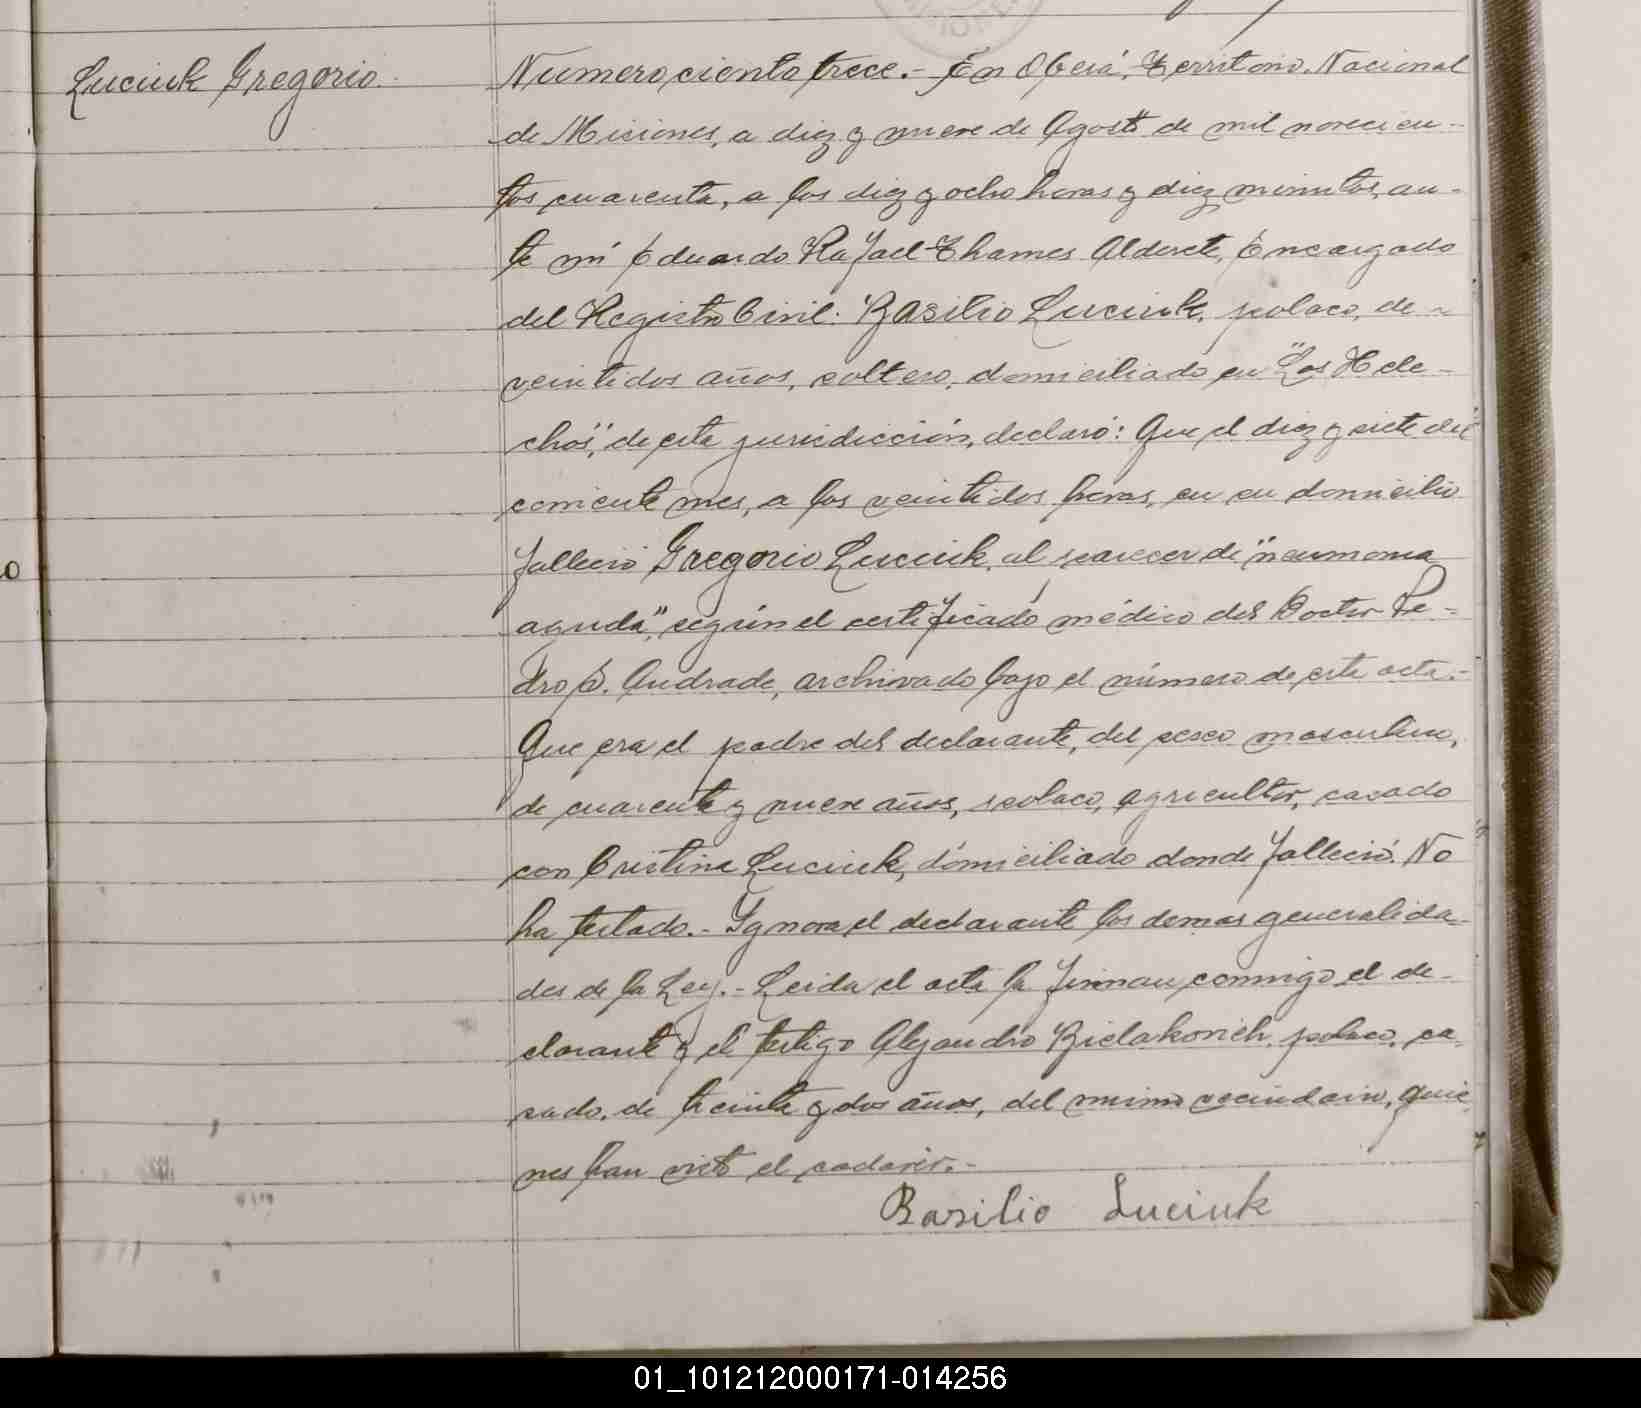 Luciuk Gregorio.
Numero ciento trece.- En Oberá, Territorio Nacional
de Misiones, a diez y nueve de Agosto de mil novecien-
tos cuarenta, a las diez y ocho horas y diez minutos, an-
te mí Eduardo Rafael Thames Alderete, Encargado
del Registro Civil: Basilio Luciuk, polaco, de
veintidos años, soltero, domiciliado en "Los Hele-
chos", de esta jurisdicción, declaró: Que el diez y siete del
corriente mes, a las veintidos horas, en su domicilio
falleció Gregorio Luciuk, al parecer de "neumonia
aguda", según el certificado médico del Doctor Pe-
dro S. Andrade, archivado bajo el número de esta acta.-
Que era el padre del declarante, del sexo masculino,
de cuarenta y nueve años, polaco, agricultor, casado
con Cristina Luciuk, domiciliado donde falleció. No
ha testado.- Ignora el declarante las demas generalida-
des de la Ley.- Leida el acta la firman conmigo el de-
clarante y el testigo Alejandro Bielakovich, polaco, ca-
sado, de treinta y dos años, del mismo vecindario, quie-
nes han visto el cadaver.-
Basilio Luciuk
01_101212000171-014256